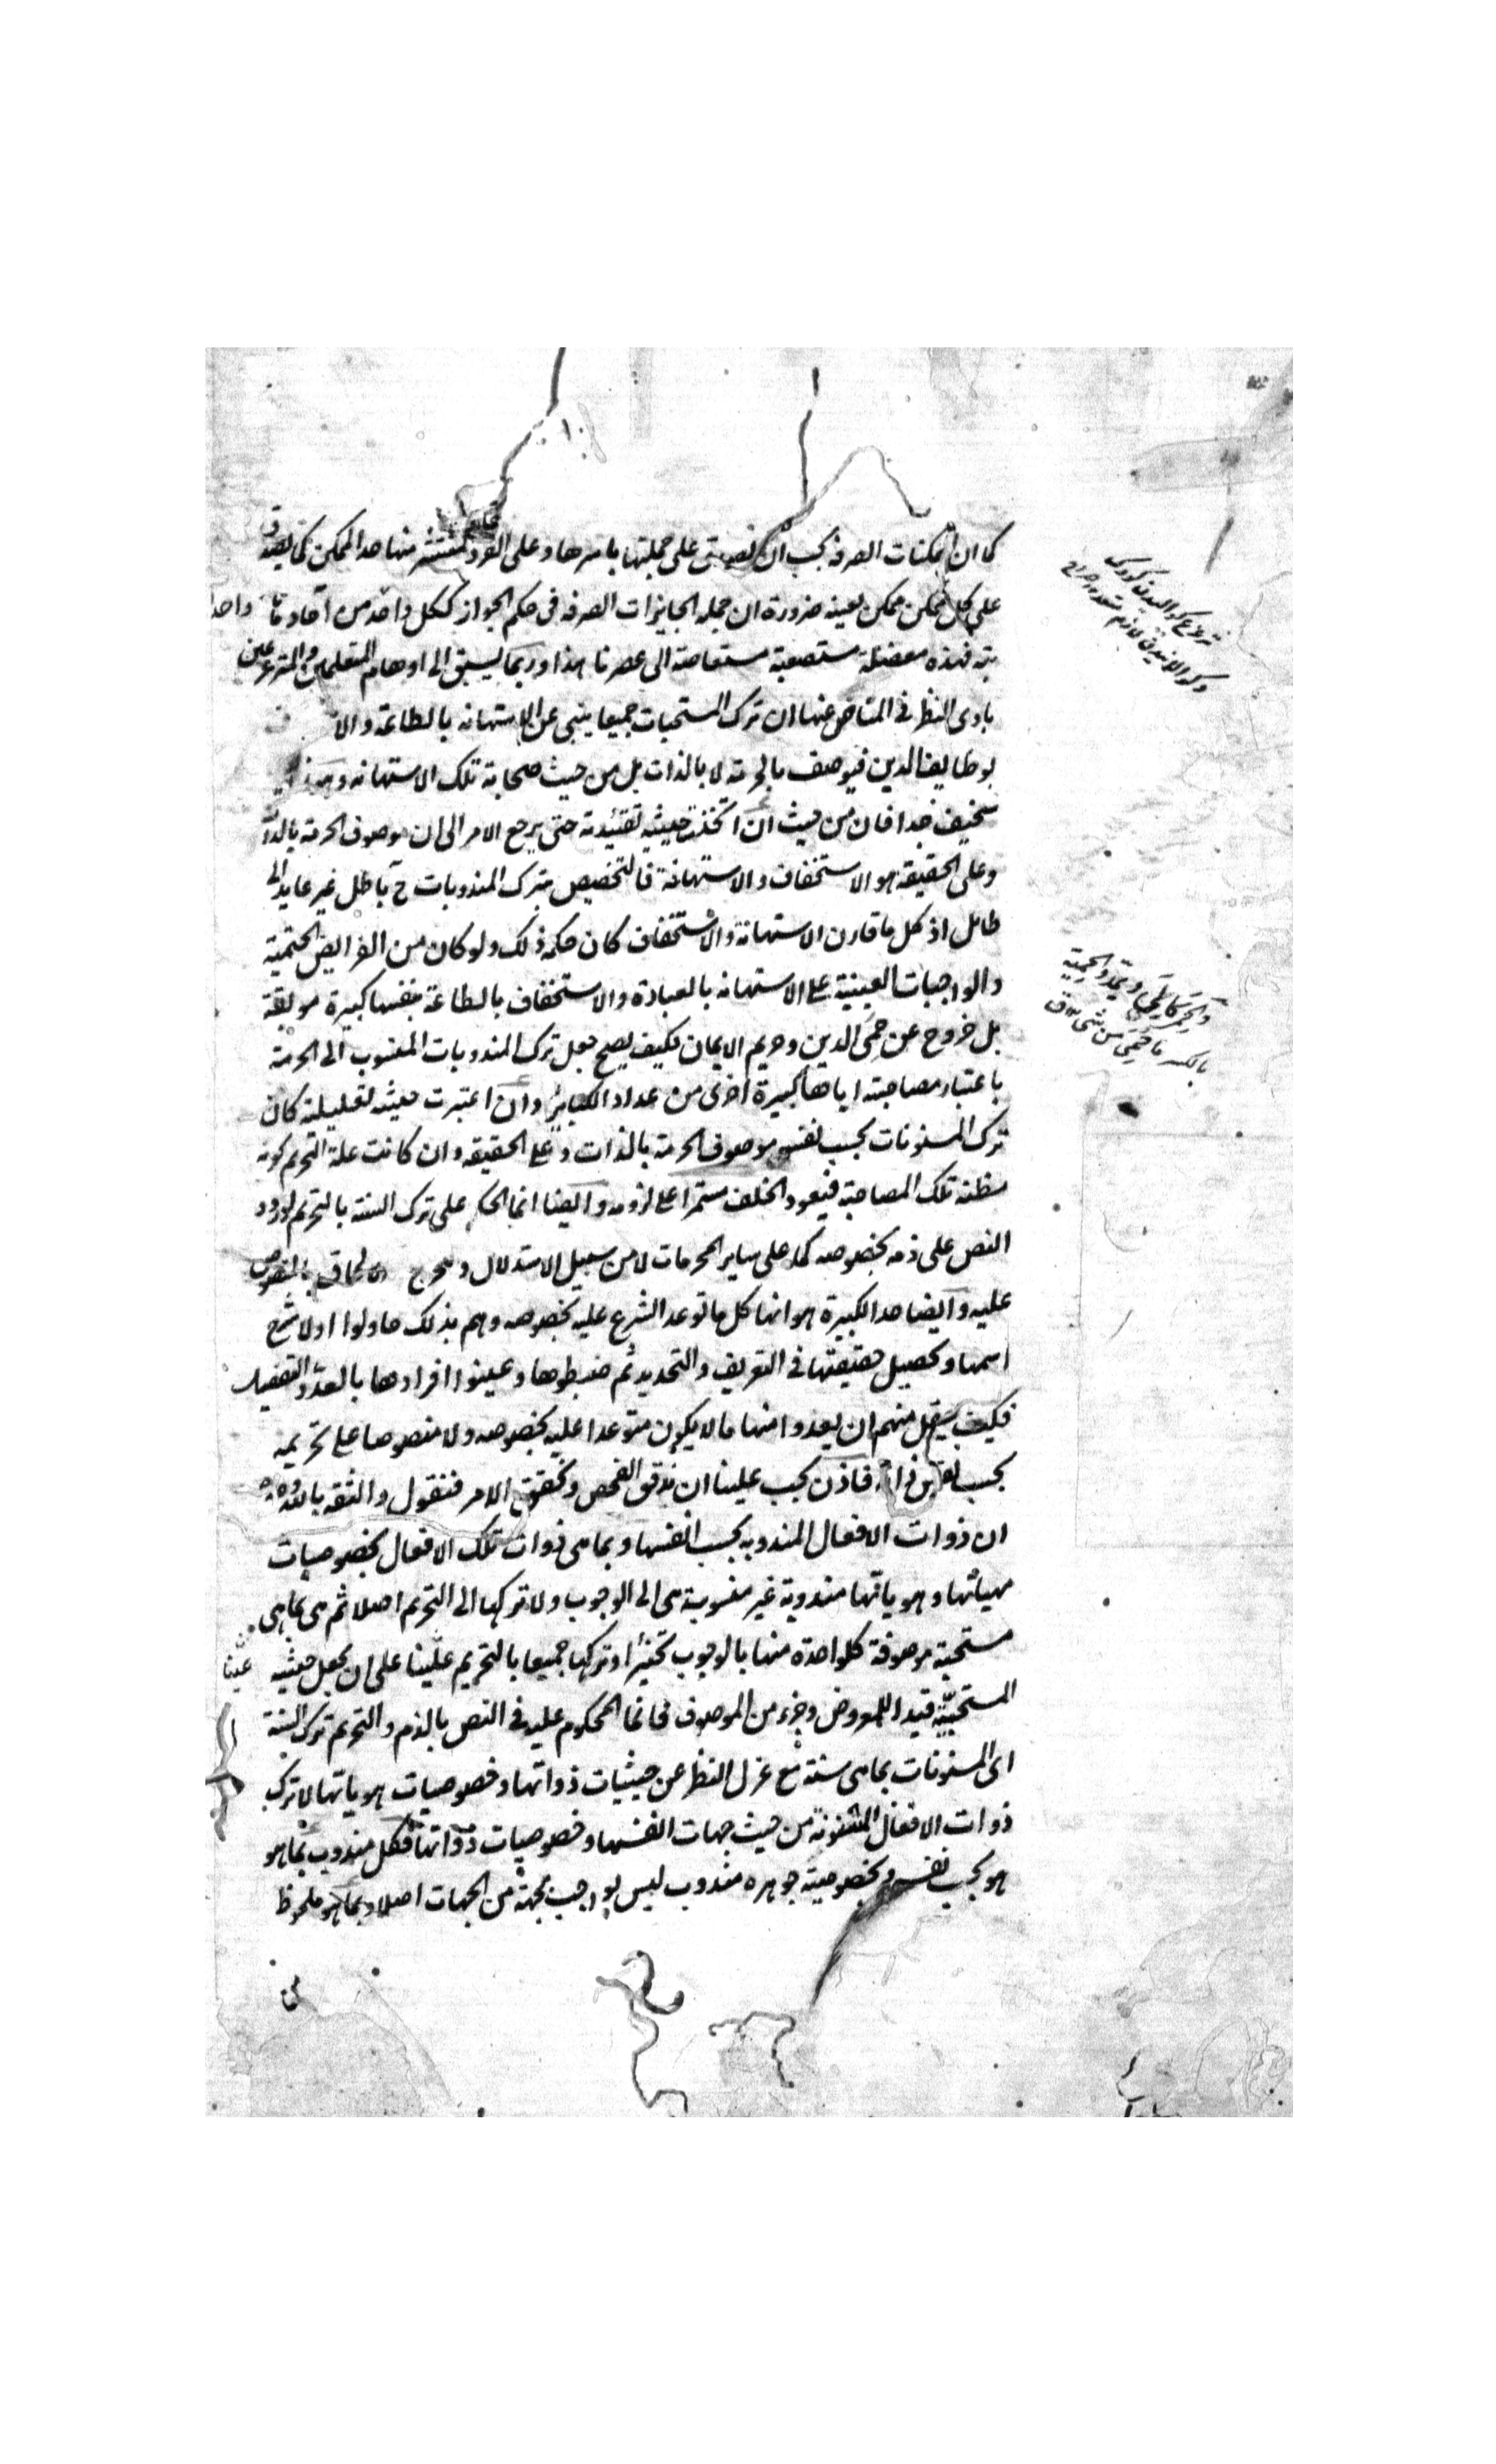 كما ان الممكنات الصرفه بجب ان يصدق على جملتها باسرها وعلى الفرد المنتشر منها حد الممكن كما يصدق
على كل ممكن ممكن بعينه ضرورة ان جمله الجايزات الصرفه فى حكم الجواز ككل واحد من آحادها واحدا
بته فهذه معضلة مستصعبة مستعاصة الى عصرنا هذا وربما يسبق الى اوهام المتعلمين والمتزعمين
بادى النظر فى التناص عنها ان ترك المستحبات جميعا ينبى عن الاستهانه بالطاعة والا
بوظايف الدين فيوصف بالحرمة لا بالذات بل من حيث صحابة تلك الاستهانه
سخيف جدا فان من حيث ان اتخذت حيثيه تقييدية حتى يرجع الامر الى ان موصوف الحرمة بالذات
وعلى الحقيقة هو الاستخفاف والاستهانة فالتخصيص بترك المندوبات ح باطل غير عايد الى
طايل اذ كل ما قارن الاستهانة والاستخفاف كان حكمه ذلك ولو كان من الفرايض الحتمية
والواجبات العينية على الاستهانه بالعبادة والاستخفاف بالطاعة بنفسها كبيرة موبقة
بل خروج عن حمى الدين وحريم الايمان فكيف يصح جعل ترك المندوبات المنسوب الى الحرمة
باعتبار مصاحبته اياها كبيرة اخرى من عداد الكباير وان اعتبرت حيثيه تعليلية كان
ترك المسنونات بحسب نفسه موصوف الحرمة بالذات وعلى الحقيقه وان كانت علة التحريم كونه
مظنة تلك المصاحبة فيعود الخلف مستمرا على لزومه وايضا انما الحكم على ترك السنة بالتحريم لورود
النص على ذمه بخصوصه كما على ساير المحرمات لا من سبيل الاستدلال و بالمنصوص
عليه وايضا حد الكبيرة هو انها كل ما توعد الشرع عليه بخصوصه وهم بذلك حاولوا اولا شرح
اسمها وتحصيل حقيقتها فى التعريف والتحديد ثم ضبطوها وعينوا افرادها بالعد والتفصيل
فكيف يعقل منهم ان يعدوا منها ما لا يكون متوعدا عليه بخصوصه ولا منصوصا على تحريمه
بحسب نفس ذاته فاذن يجب علينا ان ندقق الفحص ونحقق الامر فنقول والثقه بالله وحده
ان ذوات الافعال المندوبه بحسب انفسها وبما هى ذوات تلك الافعال بخصوصيات
مهياتها وهوياتها مندوبة غير منسوبة هى الى الوجوب ولا تركها الى التحريم اصلا ثم هى بما هى
مستحبة موصوفة كلواحدة منها بالوجوب تخيرا وتركها جميعا بالتحريم علينا على ان يجعل حيثيه
عينا
المستحبية قيدا للمعروض وجزء من الموصوف فانما المحكوم عليه فى النص بالذم والتحريم ترك السنة
اى المسنونات بما هى سنة مع عزل النظر عن حيثيات ذواتها وخصوصيات هوياتها لا ترك
ذوات الافعال المسنونة من حيث جهات انفسها وخصوصيات ذواتها فكل مندوب بما هو
هو بحسب نفسه وبخصوصية جوهره مندوب ليس بواجب بجهة من الجهات اصلا وبما هو ملحوظ